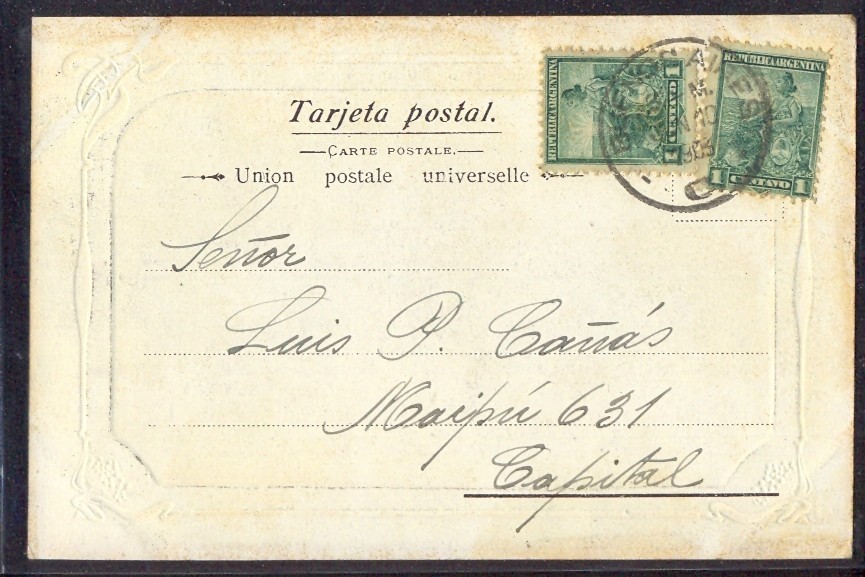 Tarjeta postal.
CARTE POSTALE.
Union postale universelle
REPUBLICA ARGENTINA
1 CENTAVO 1
REPUBLICA ARGENTINA
1 CENTAVO 1
Señor
Luis P. Cañás
Maipú 631
Capital